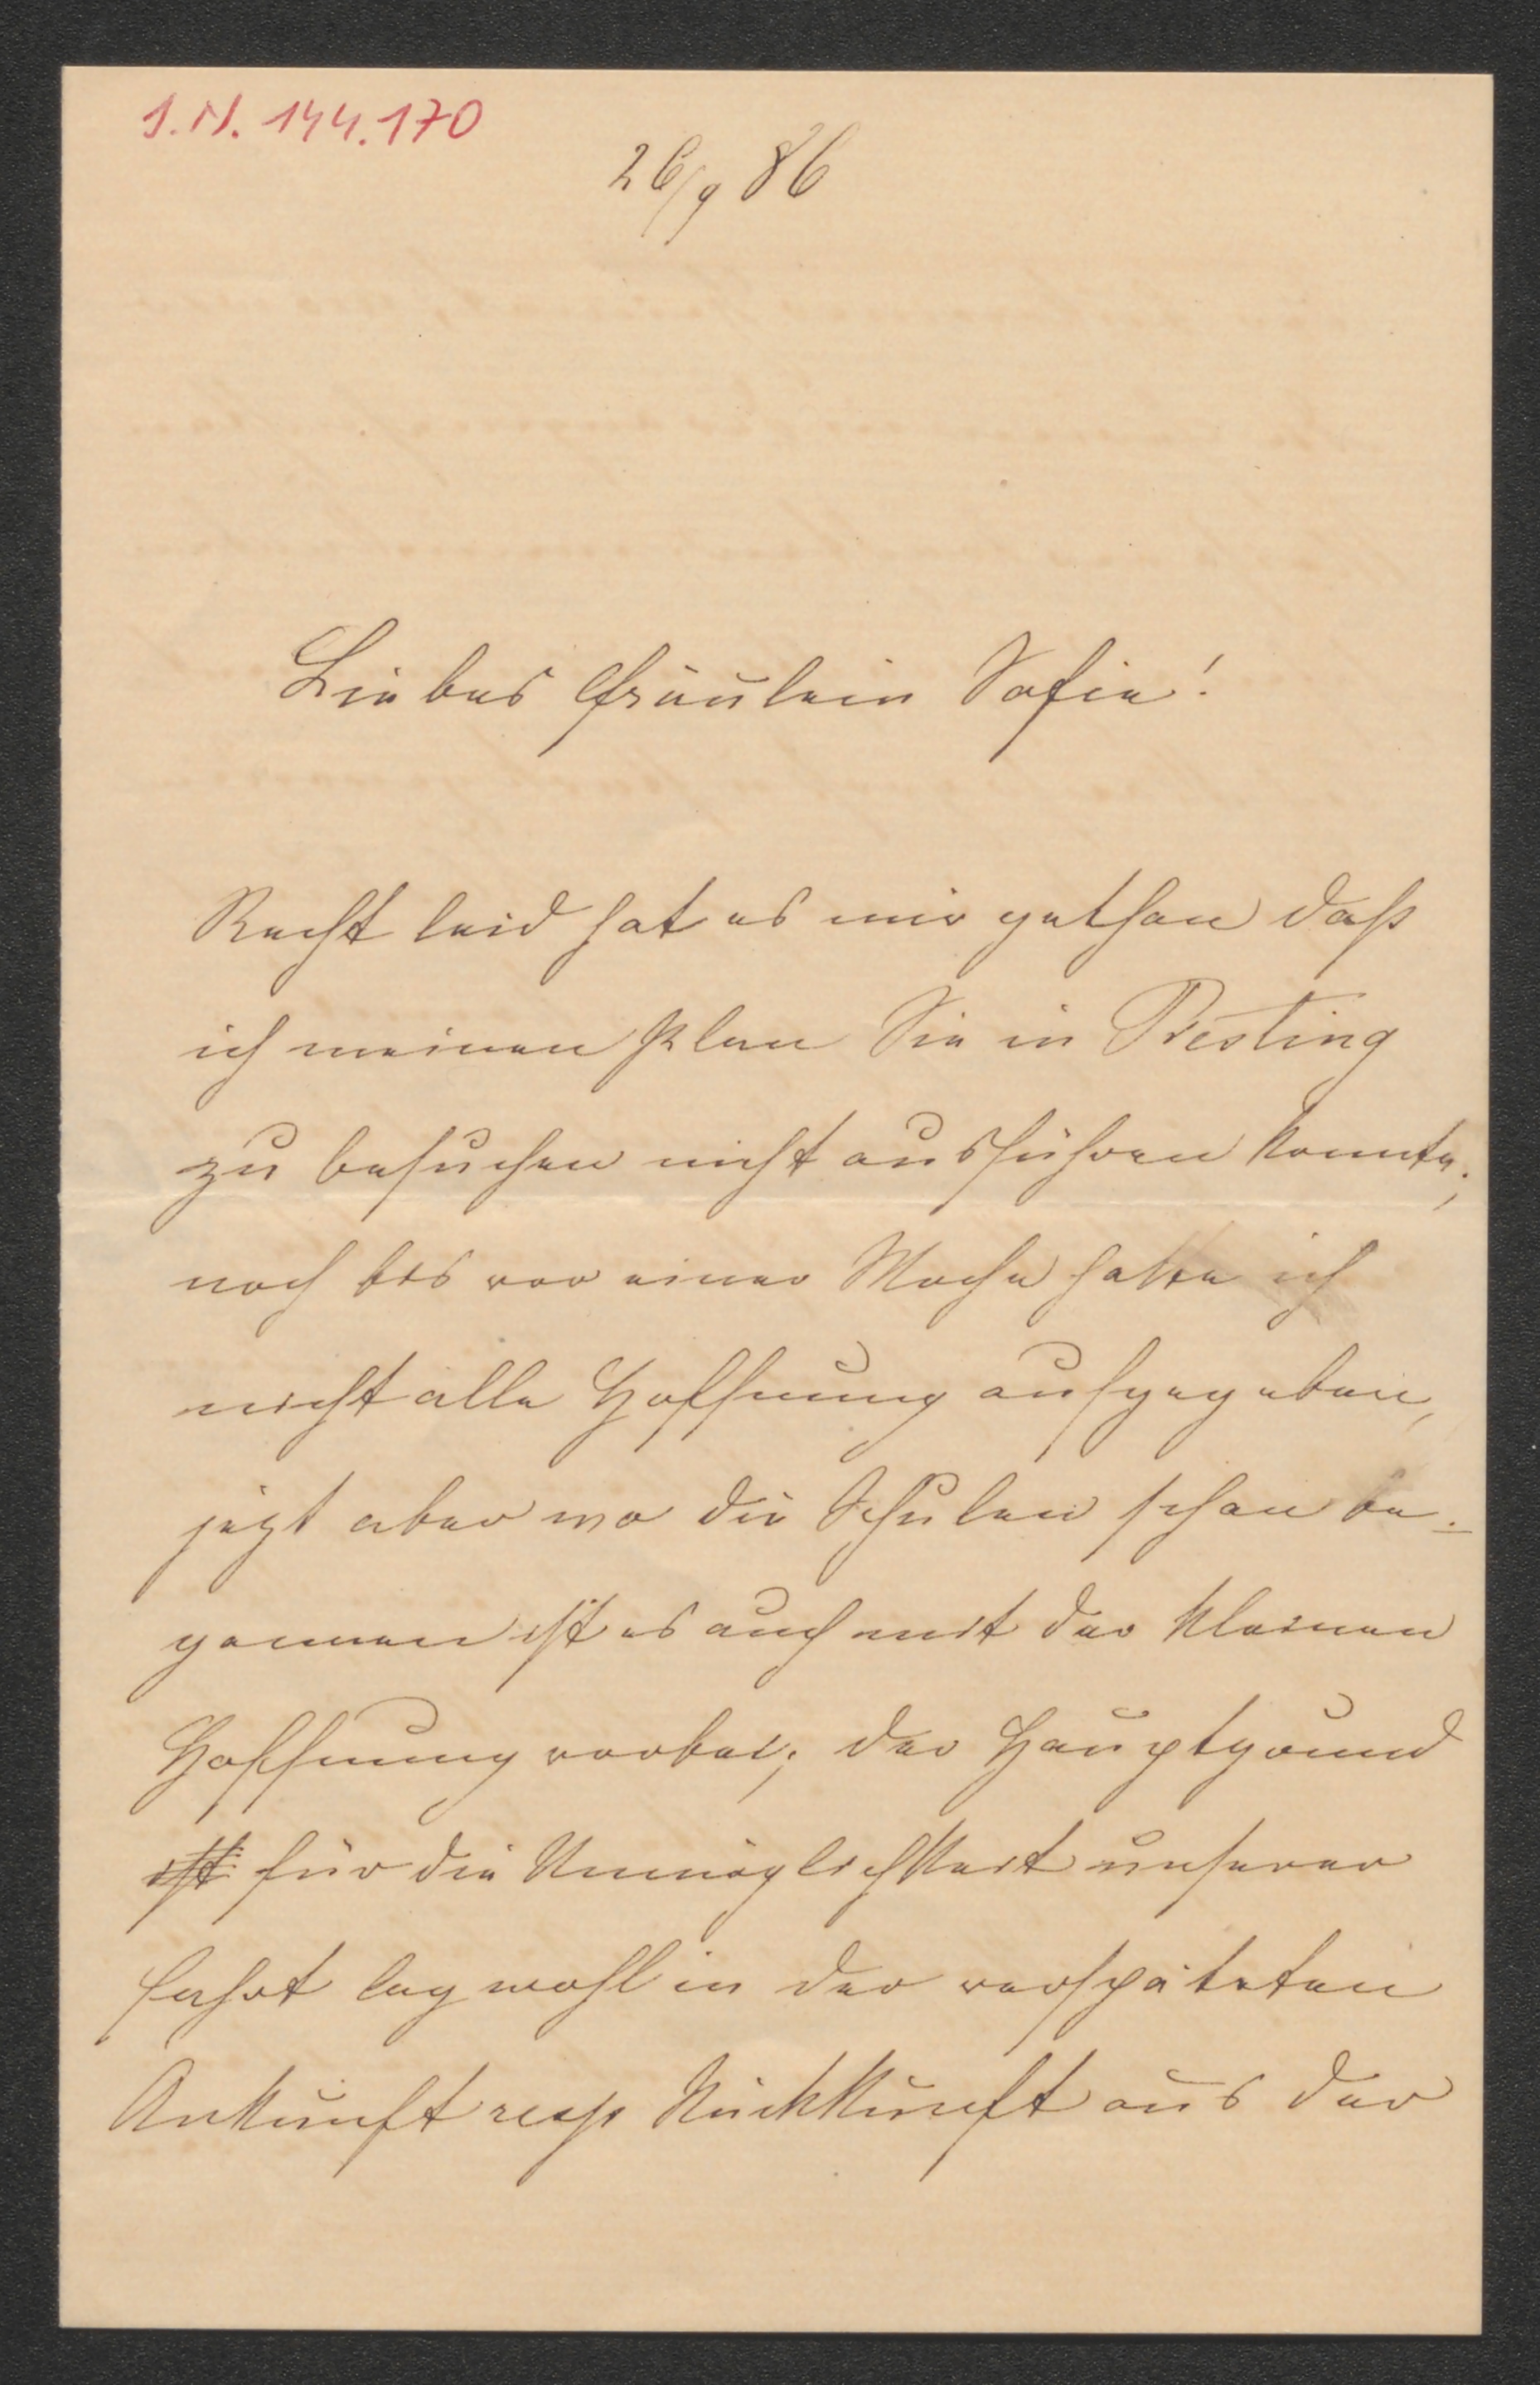 I.N. 144.170
26/9 86
Liebes Fräulein Sofie!
Recht leid hat es mir gethan daß
ich meinen Plan Sie in Piesting
zu besuchen nicht ausführen konnte;
noch bis vor einer Woche hatte ich
nicht alle Hoffnung aufgegeben,
jezt aber wo die Schulen schon be-
gonnen ist es auch mit der kleinen
Hoffnung vorbei; der Hauptgrund
ist für die Unmöglichkeit unserer
Fahrt lag wohl in der verspäteten
Ankunft resp Rückkunft aus der